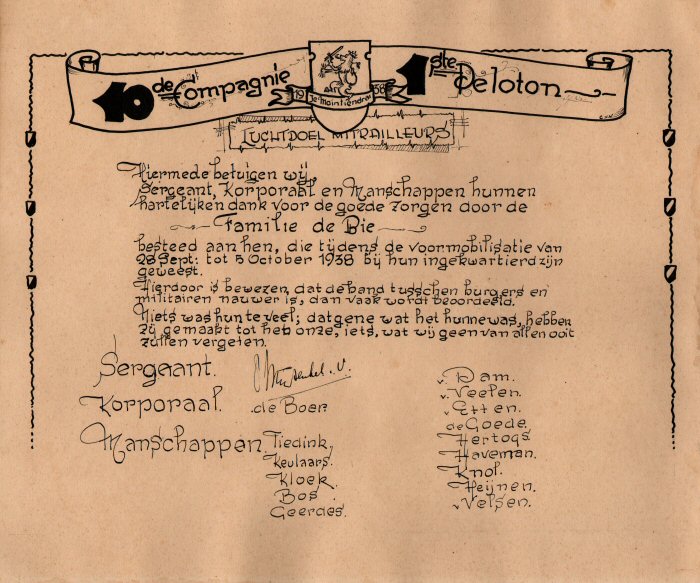 10de Compagnie
1ste Peloton
19 38
Je Maintiendrai
LUCHTDOEL MITRAILLEURS
Hiermede betuigen wij,
Sergeant, Korporaal en Manschappen hunnen
hartelijken dank voor de goede zorgen door de
Familie de Bie
besteed aan hen, die tijdens de voormobilisatie van
28 Sept: tot 5 October 1938 bij hun ingekwartierd zijn
geweest.
Hierdoor is bewezen, dat de band tusschen burgers en
militairen nauwer is, dan vaak wordt beoordeeld.
Niets was hun te veel; datgene wat het hunne was, hebben
zij gemaakt tot het onze, iets, wat wij geen van allen ooit
zullen vergeten.
Sergeant.
Korporaal. de Boer.
Manschappen. Tiedink.
Keulaars.
Kloek.
Bos.
Geerdes.
v. Dam.
v. Veelen.
v. Etten.
de Goede.
Hertogs.
Haveman.
Knol.
Heijnen.
v. Velsen.